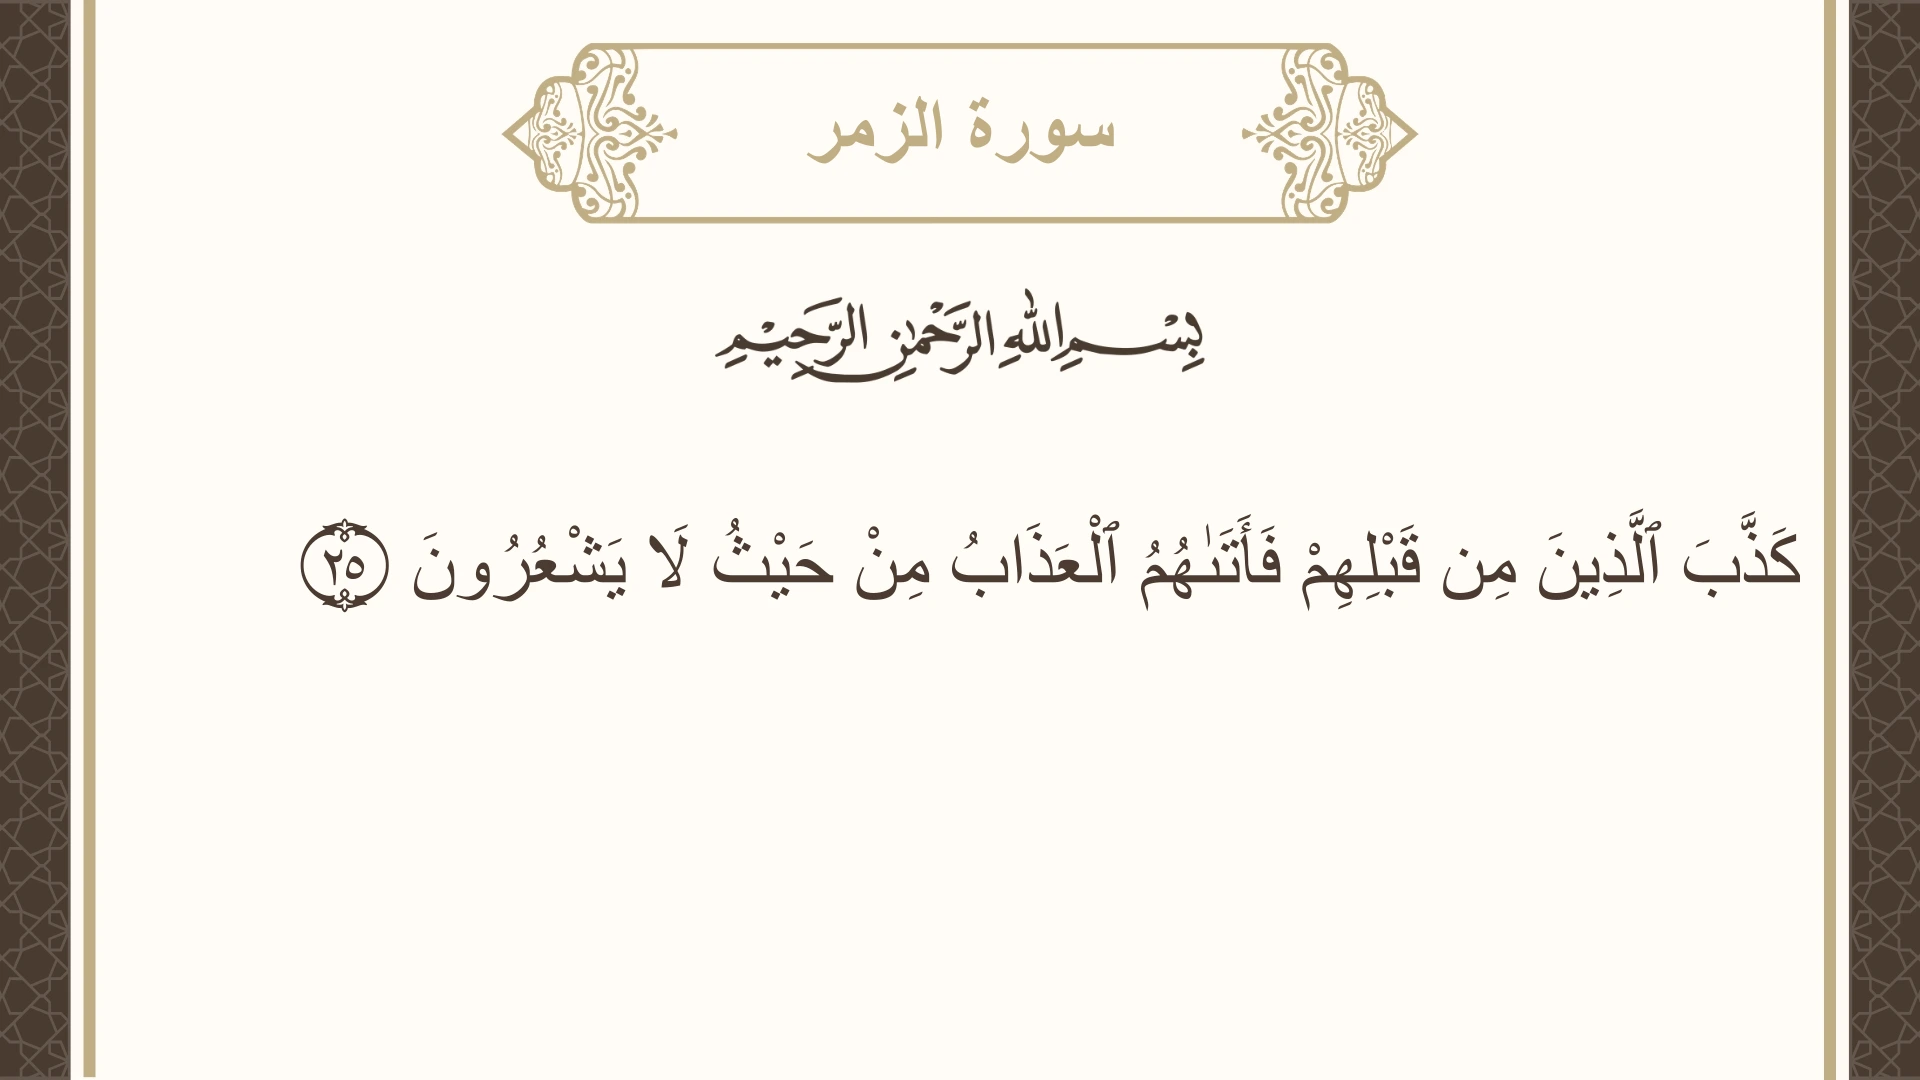 سورة الزمر
بِسْمِ اللهِ الرَّحْمٰنِ الرَّحِيْمِ
كَذَّبَ ٱلَّذِينَ مِن قَبْلِهِمْ فَأَتَىٰهُمُ ٱلْعَذَابُ مِنْ حَيْثُ لَا يَشْعُرُونَ ٢٥